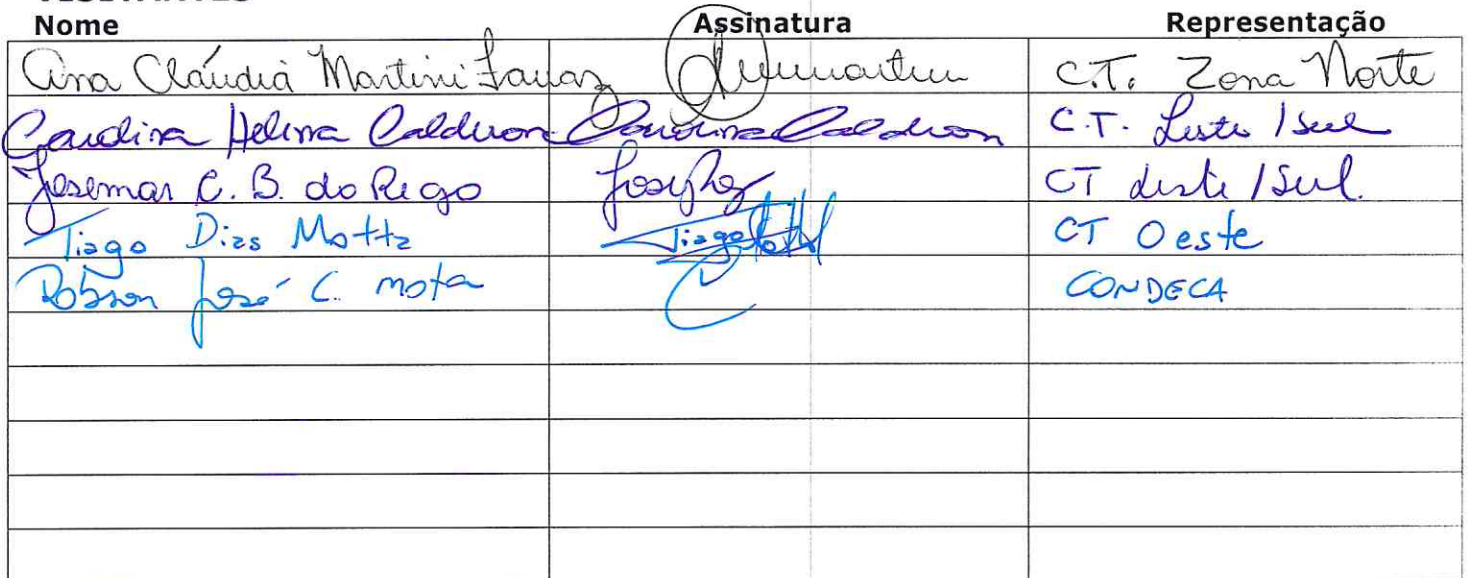 VISITANTES
Nome Assinatura Representação
Ana Cláudia Martini Favaz C.T. Zona Norte
Carolina Helena Calderon Carolina Calderon C.T. Leste / Sul
Josemar C. B. do Rego CT Leste / Sul.
Tiago Dias Motta Tiago Motta CT Oeste
Robson José C. mota CONDECA